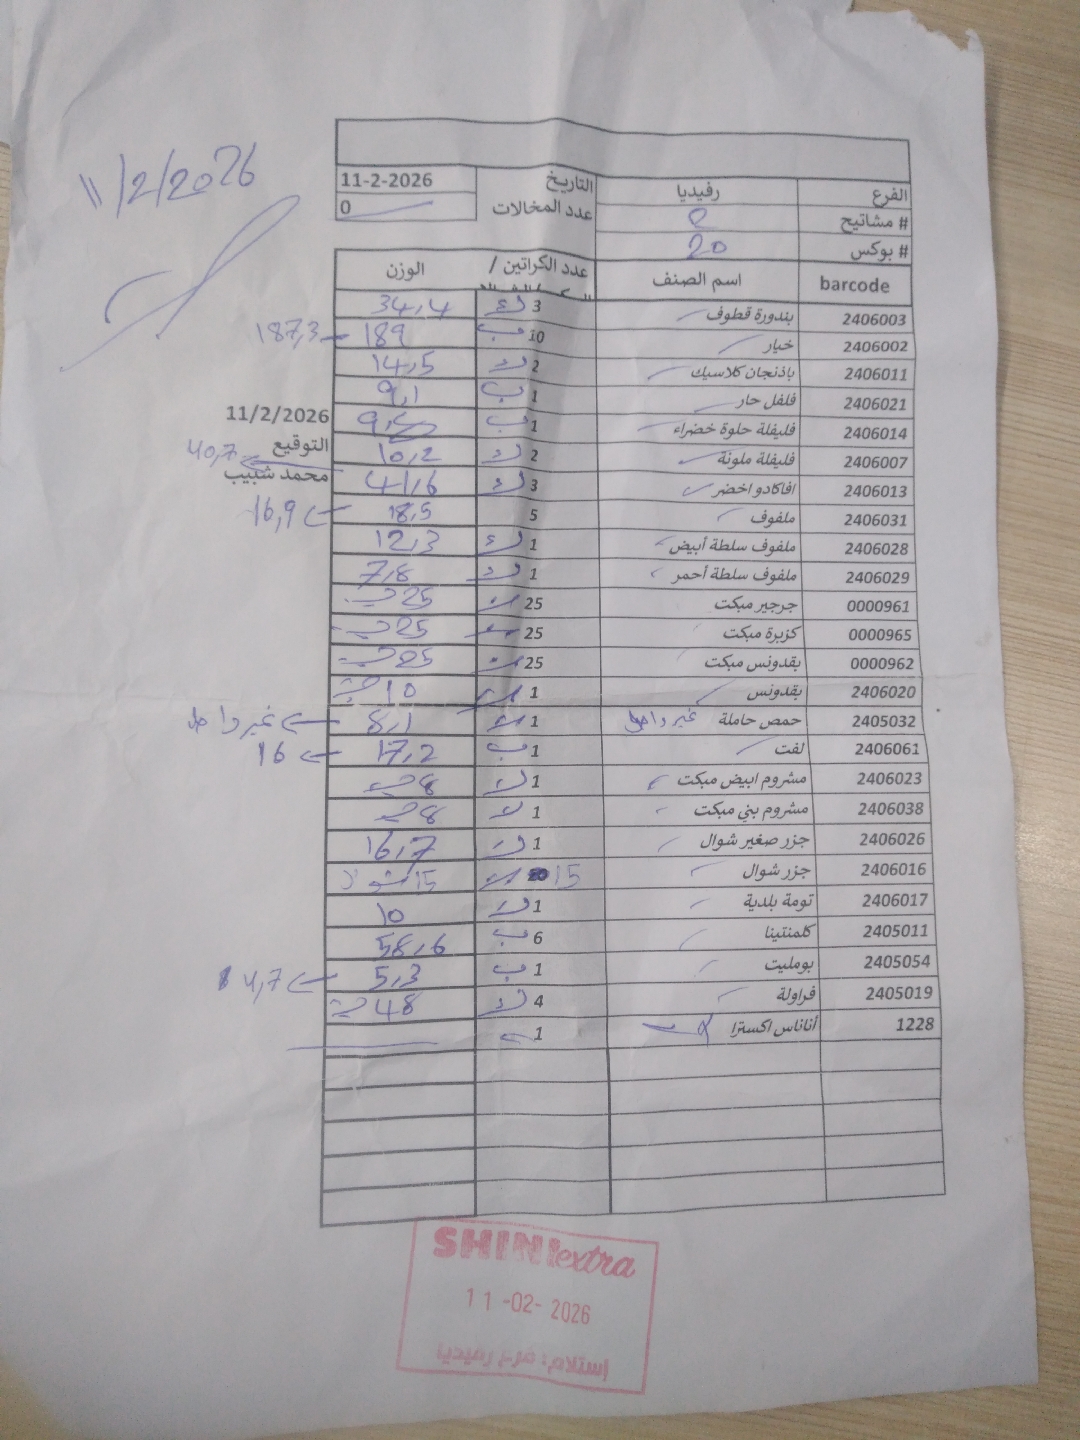 11/2/2026
الفرع رفيديا التاريخ 11-2-2026
# مشاتيح 2 عدد المخالات 0
# بوكس 20
barcode اسم الصنف عدد الكراتين / الوزن
2406003 بندورة قطوف 3 ك 34,4
2406002 خيار 10 ب 189 ← 187,3
2406011 باذنجان كلاسيك 2 ك 14,5
2406021 فلفل حار 1 ب 9,1
2406014 فليفلة حلوة خضراء 1 ب
11/2/2026
2406007 فليفلة ملونة 2 ك 10,2
التوقيع
2406013 افاكادو اخضر 3 ك 41,6 ← 40,7
محمد شبيب
2406031 ملفوف 5 18,5 ← 16,9
2406028 ملفوف سلطة أبيض 1 ك 12,3
2406029 ملفوف سلطة أحمر 1 ك 7,8
0000961 جرجير مبكت 25 25
0000965 كزبرة مبكت 25 25
0000962 بقدونس مبكت 25 25
2406020 بقدونس 1 10
2405032 حمص حاملة غير داخل 1 8,1 ← غير داخل
2406061 لفت 1 ب 17,2 ← 16
2406023 مشروم ابيض مبكت 1 ك 8
2406038 مشروم بني مبكت 1 ك 8
2406026 جزر صغير شوال 1 ك 16,7
2406016 جزر شوال 15 15
2406017 تومة بلدية 1 ك 10
2405011 كلمنتينا 6 ب 58,6
2405054 بومليت 1 ب 5,3 ← 4,7
2405019 فراولة 4 ك 48
1228 أناناس اكسترا 1
SHINI extra
11-02-2026
إستلام: فرع رفيديا